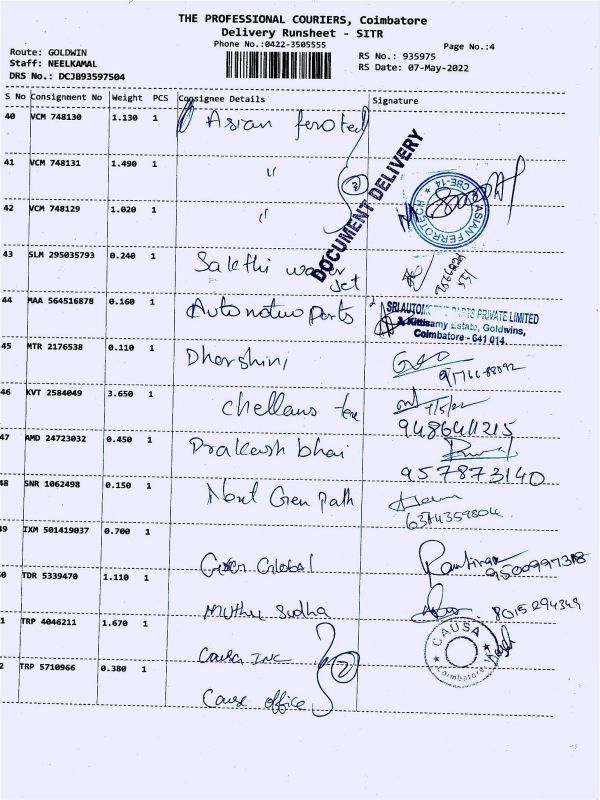 THE PROFESSIONAL COURIERS, Coimbatore
Delivery Runsheet - SITR
Phone No.:0422-3505555
Page No.:4
Route: GOLDWIN
Staff: NEELKAMAL
DRS No.: DCJB93597504
RS No.: 935975
RS Date: 07-May-2022
S No Consignment No Weight PCS Consignee Details Signature
40 VCM 748130 1.130 1 Asian feroted
41 VCM 748131 1.490 1 "
42 VCM 748129 1.020 1 "
DOCUMENT DELIVERY
ASIAN FERROTE
CBE-14
43 SLM 295035793 0.240 1 Sakthi water Jet
44 MAA 564516878 0.160 1 Automotive Parts
SRI AUTOMOTIVE PARTS PRIVATE LIMITED
Kittisamy Estate, Goldwins,
Coimbatore - 641 014.
45 MTR 2176538 0.110 1 Dharshini
46 KVT 2584049 3.650 1 chellams tex
7/5/22
9486411215
47 AMD 24723032 0.450 1 Prakash bhai
9578773140
48 SNR 1062498 0.150 1 Next Gen Path
6374359804
49 IXM 501419037 0.700 1 Global
9500997318
0 TDR 5339470 1.110 1 Muthu Sudha
8015294349
1 TRP 4046211 1.670 1 Causa INC
CAUSA
Coimbatore
2 TRP 5710966 0.380 1 Cause office